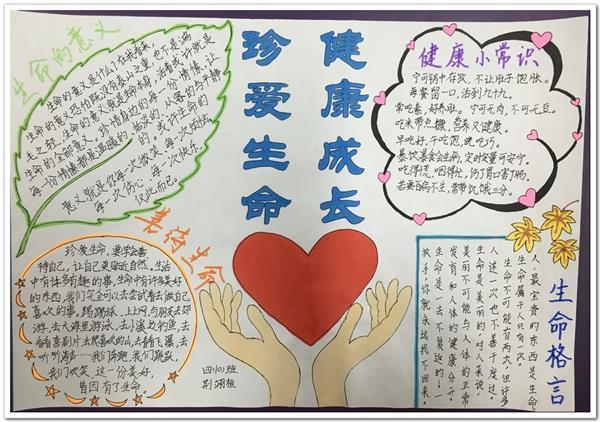 珍爱生命
健康成长
生命的意义
生命的意义是什么？在我看来，
生命的意义恐怕既没有泰山之重，也不是鸿
毛之轻。生命的意义就是生命本身，活着或许就是
生命的全部意义，珍惜身边的每一份情缘，让
每一份情感都是温暖的
意义就是你每一次微笑，每一次烦恼，
每一次伤心，每一次快乐，
仅此而已。
善待生命
珍爱生命，要学会善
待自己，让自己更贴近自然。生活
中有许多有趣的事，生命中有许多美好
的东西，我们完全可以去尝试着去做自己
喜欢的事，踢踢球，上上网，与朋友去郊
游，去大海里游泳，去小溪边钓鱼，去
看看喜剧片，去爬喜欢的山，去看飞瀑，去
听听海音……我们奔跑，我们跳跃，
我们欢笑，这一份美好，
皆因有了生命。
健康小常识
宁可锅中存放，不让肚子饱胀。
每餐留一口，活到九十九。
常吃素，好养肚。宁可无肉，不可无豆。
吃米带点糠，营养又健康。
早吃好，午吃饱，晚吃巧。
暴饮暴食会生病，定时定量可安宁。
吃得慌，咽得忙，伤了胃口害了肠。
若要百病不生，常带饥饿三分。
生命格言
人，最宝贵的东西是生命，
生命属于人只有一次。
人连一次也不善于度过。
生命是美丽的，对人来说，
美丽不可能与人体的正常
发育和人体的健康分开。
生命是一去不复返的！一
放手，你就永远找不回来。
四(10)班